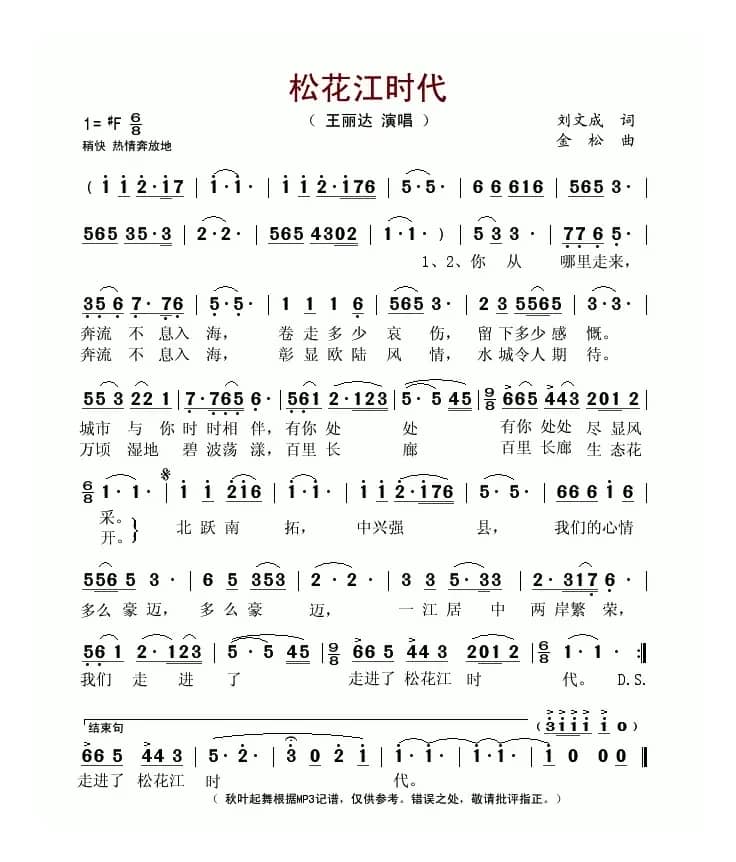 松花江时代
1= #F 6/8
（ 王丽达 演唱 ）
刘文成 词
稍快 热情奔放地
金 松 曲
( i i 2·i7 | i·i· | i i 2·i76 | 5·5· | 6 6 616 | 565 3· |
565 35·3 | 2·2· | 565 4302 | 1·1· ) | 5 3 3· | 77 6 5· |
1、2、你 从 哪里走来，
35 6 7·76 | 5·5· | 1 1 1 6 | 565 3· | 2 3 5565 | 3·3· |
奔流 不 息入 海， 卷 走多少 哀 伤， 留 下多少感 慨。
奔流 不 息入 海， 彰 显欧陆 风 情， 水 城令人期 待。
55 3 22 1 | 7·765 6· | 561 2·123 | 5·5 45 | 9/8 665 443 201 2 |
城市 与 你 时 时相 伴，有你 处 处 有你 处处 尽 显风
万顷 湿地 碧 波荡 漾，百里 长 廊 百里 长廊 生 态花
6/8 1·1· | i i 2i6 | i·i· | i i 2·i76 | 5·5· | 66 6 i 6 |
采。 北 跃 南 拓， 中兴强 县， 我们的心情
开。
556 3· | 6 5 353 | 2·2· | 3 3 5·33 | 2·317 | 6·6· |
多么 豪 迈， 多 么 豪 迈， 一 江 居 中 两 岸繁 荣，
56 1 2·123 | 5·5 45 | 9/8 66 5 44 3 201 2 | 6/8 1·1· :|
我们 走 进 了 走进了 松花江 时 代。 D.S.
结束句
( 3iii i 0 )
66 5 44 3 | 5·2· | 3 0 2 i | i·i· | i·i· | i 0 00 |
走进了 松花江 时 代。
（ 秋叶起舞根据MP3记谱，仅供参考。错误之处，敬请批评指正。）